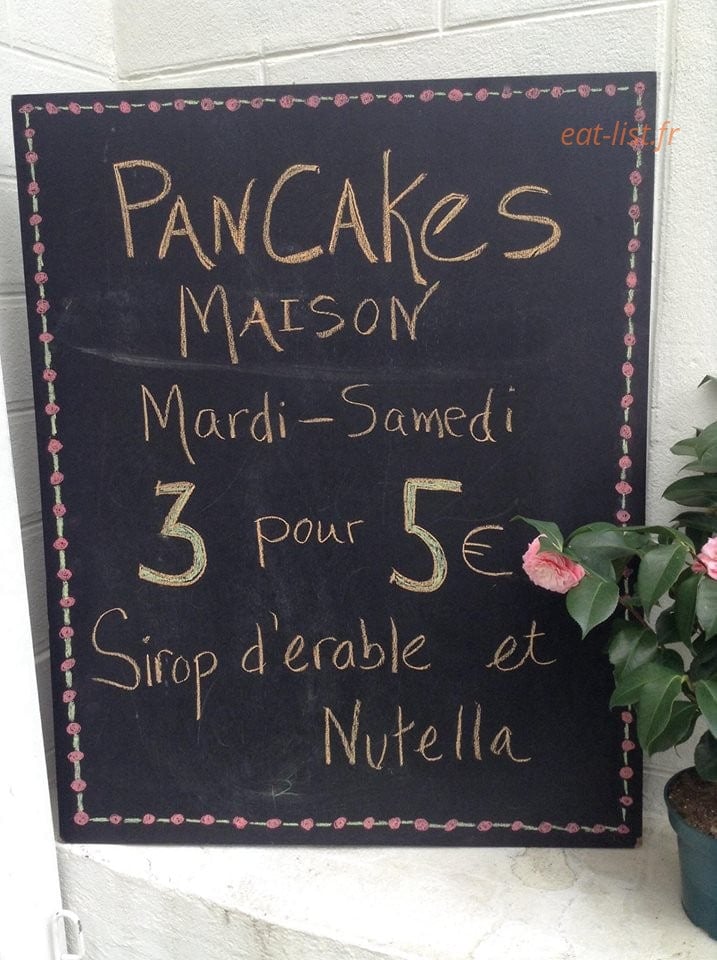 eat-list.fr
PANCAKes
MAISON
Mardi - Samedi
3 pour 5€
Sirop d'erable et
Nutella